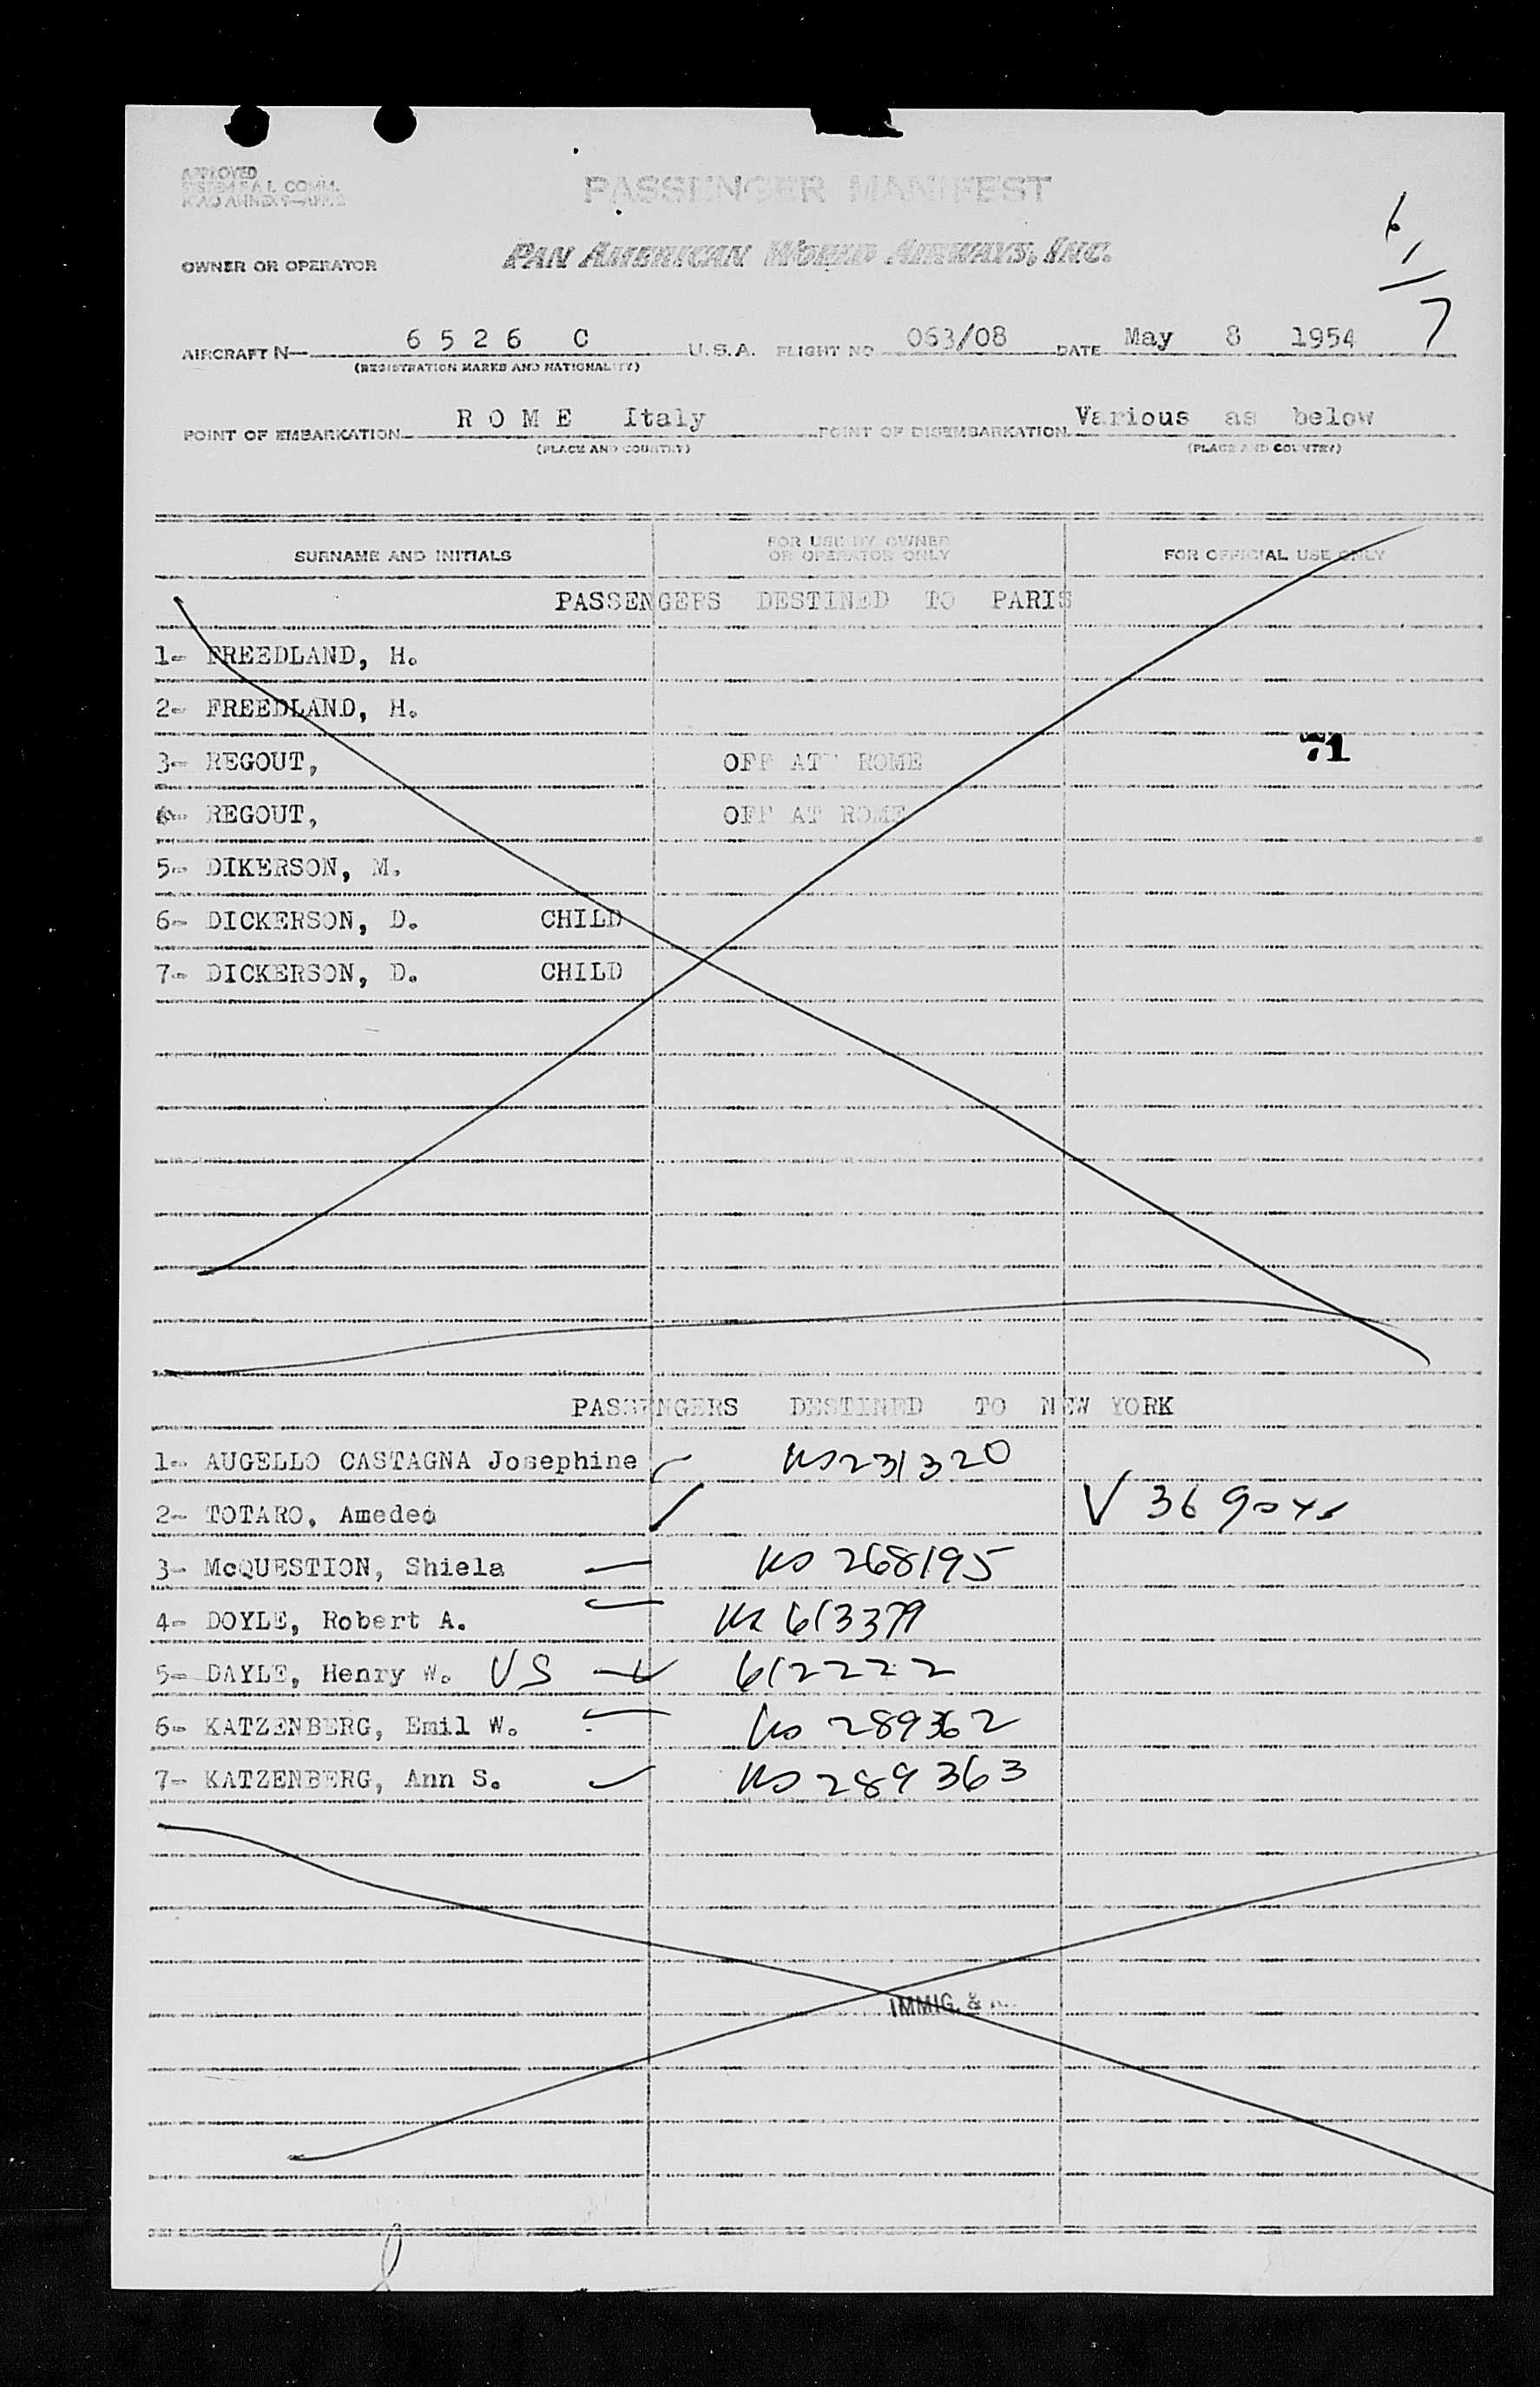 APPROVED
SYSTEM F.A.L. COMM.
ICAO ANNEX 9—APP.
PASSENGER MANIFEST
6
1
7
OWNER OR OPERATOR PAN AMERICAN WORLD AIRWAYS, INC.
AIRCRAFT N— 6 5 2 6 C U.S.A. FLIGHT NO. 063/08 DATE May 8 1954
(REGISTRATION MARKS AND NATIONALITY)
POINT OF EMBARKATION R O M E Italy POINT OF DISEMBARKATION Various as below
(PLACE AND COUNTRY) (PLACE AND COUNTRY)
SURNAME AND INITIALS FOR USE BY OWNER OR OPERATOR ONLY FOR OFFICIAL USE ONLY
PASSENGERS DESTINED TO PARIS
1- FREEDLAND, H.
2- FREEDLAND, H.
3- REGOUT, OFF AT ROME 71
4- REGOUT, OFF AT ROME
5- DIKERSON, M.
6- DICKERSON, D. CHILD
7- DICKERSON, D. CHILD
PASSENGERS DESTINED TO NEW YORK
1- AUGELLO CASTAGNA Josephine ✓ US 231320
2- TOTARO, Amedeo ✓ V 36
3- McQUESTION, Shiela US 268195
4- DOYLE, Robert A. 613379
5- DAYLE, Henry W. US 612222
6- KATZENBERG, Emil W. US 289362
7- KATZENBERG, Ann S. ✓ US 289363
IMMIG. &